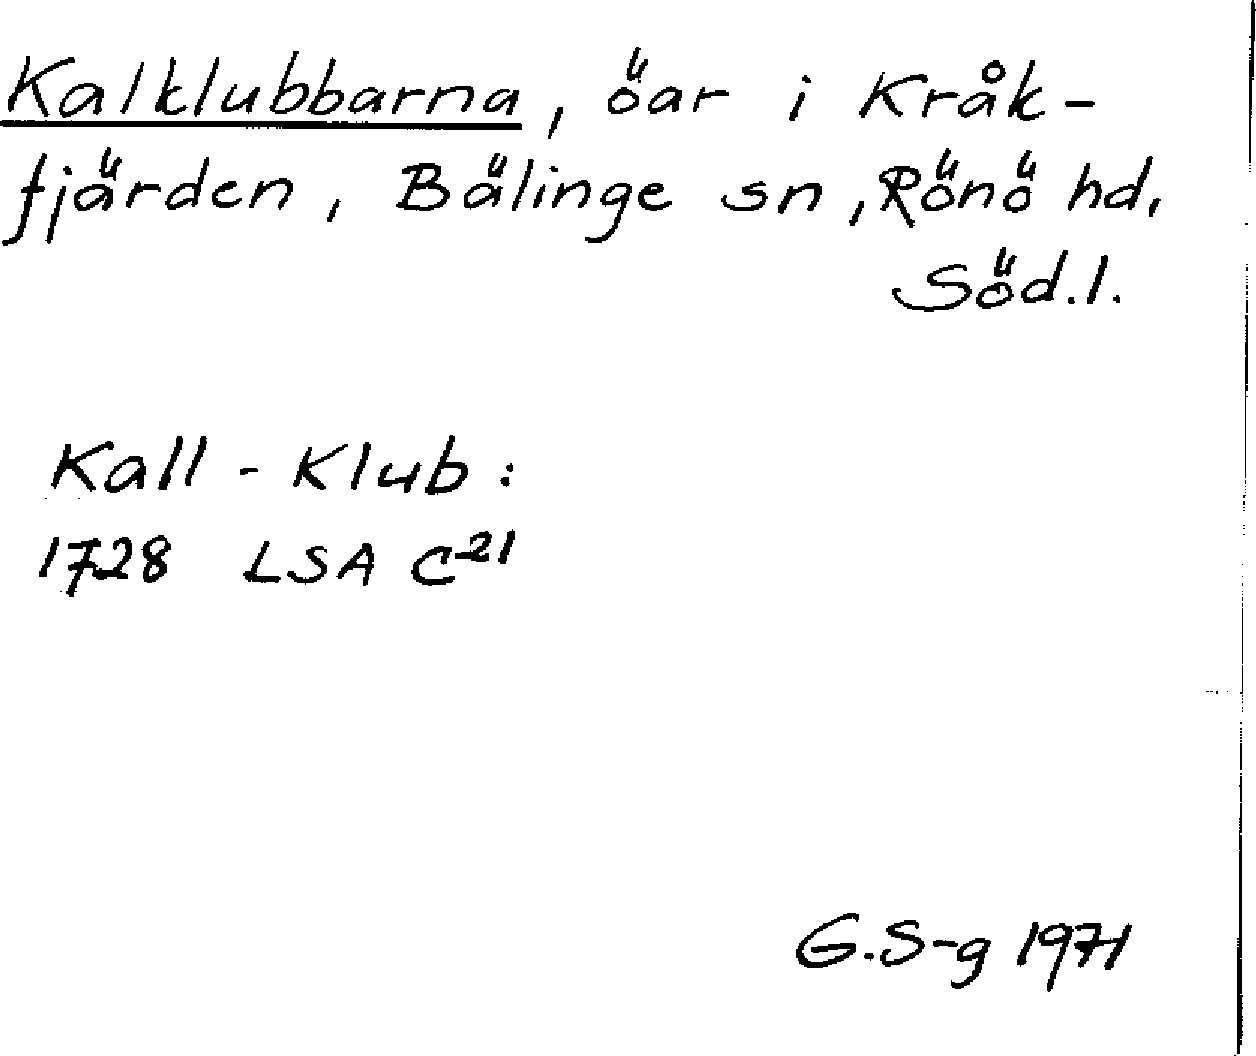 Kalklubbarna, öar i Kråk-
fjärden, Bälinge sn, Rönö hd,
Söd.l.
Kall-Klub:
1728 LSA C21
G.S-g 1971